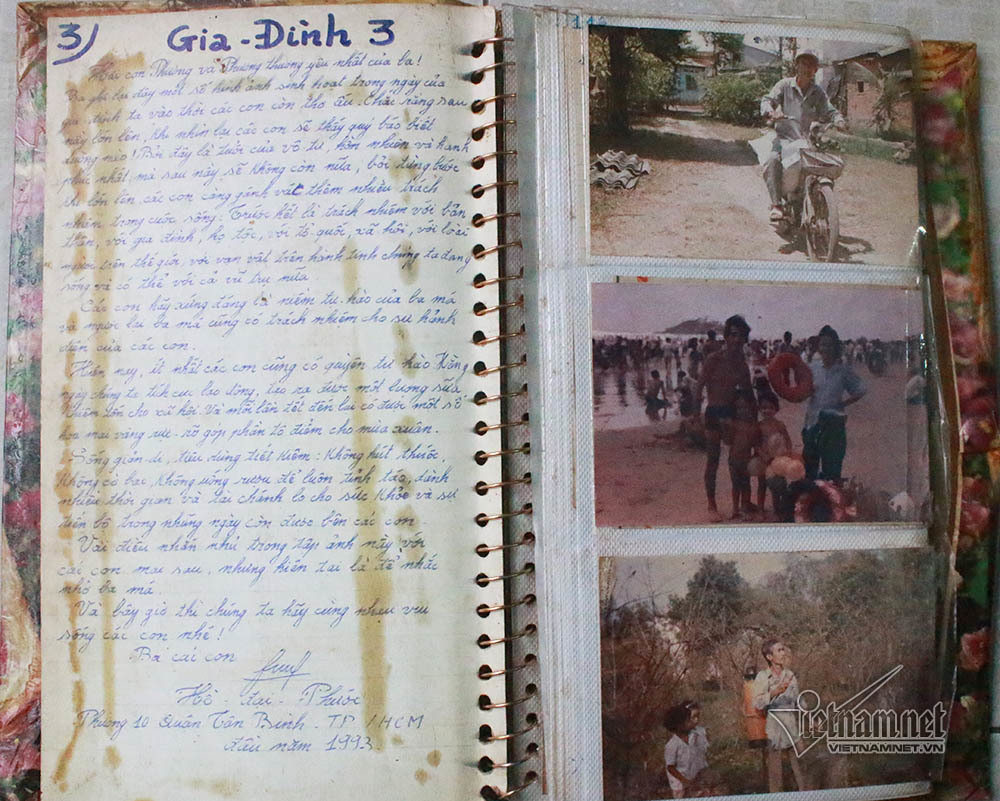 3) Gia-Đình 3
con Phường và Phượng thương yêu nhất của ba!
Ba ghi lại đây một số hình ảnh sinh hoạt trong ngày của
gia đình ta vào thời các con còn thơ ấu. Chắc rằng sau
này lớn lên, khi nhìn lại các con sẽ thấy quý báo biết
dường nào! Bởi đây là tuổi của vô tư, hồn nhiên và hạnh
phúc nhất, mà sau này sẽ không còn nữa, bởi từng bước
khi lớn lên, các con càng gánh vác thêm nhiều trách
nhiệm trong cuộc sống: Trước hết là trách nhiệm với bản
thân, với gia đình, họ tộc, với tổ-quốc, xã hội, với loài
người trên thế giới, với vạn vật trên hành tinh chúng ta đang
sống và có thể với cả vũ trụ nữa.
Các con hãy xứng đáng là niềm tự-hào của ba má
và ngược lại ba má cũng có trách nhiệm cho sự hãnh
diện của các con.
Hiện nay, ít nhất các con cũng có quyền tự hào hằng
ngày chúng ta tích cực lao động, tạo ra được một lượng sữa
lớn cho xã hội. Và mỗi lần tết đến lại có được một số
hoa mai vàng rực-rỡ góp phần tô điểm cho mùa xuân.
Sống giản-dị, tiêu dùng tiết kiệm: Không hút thuốc,
không cờ bạc, không uống rượu để luôn tỉnh táo, dành
nhiều thời gian và tài chánh lo cho sức khỏe và sự
tiến bộ trong những ngày còn được bên các con.
Vài điều nhắn nhủ trong tập ảnh này với
các con mai sau, nhưng hiện tại là để nhắc
nhở ba má.
Và bây giờ thì chúng ta hãy cùng nhau vui
sống các con nhé!
Ba các con
Hồ tai - Phước
Phường 10 Quận Tân Bình - TP/HCM
đầu năm 1993
11
vietnamnet
VIETNAMNET.VN